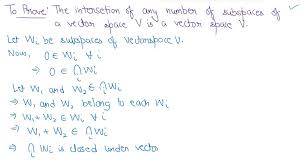 To Prove: The intersection of any number of subspaces of
a vector space V is a vector space V.
Let Wi be subspaces of vectorspace V.
Now, 0 ∈ Wi ∀ i
⇒ 0 ∈ ⋂i Wi
Let W₁ and W₂ ∈ ⋂i Wi
⇒ W₁ and W₂ belong to each Wi
⇒ W₁ + W₂ ∈ Wi ∀ i
⇒ W₁ + W₂ ∈ ⋂i Wi
⇒ ⋂i Wi is closed under vector